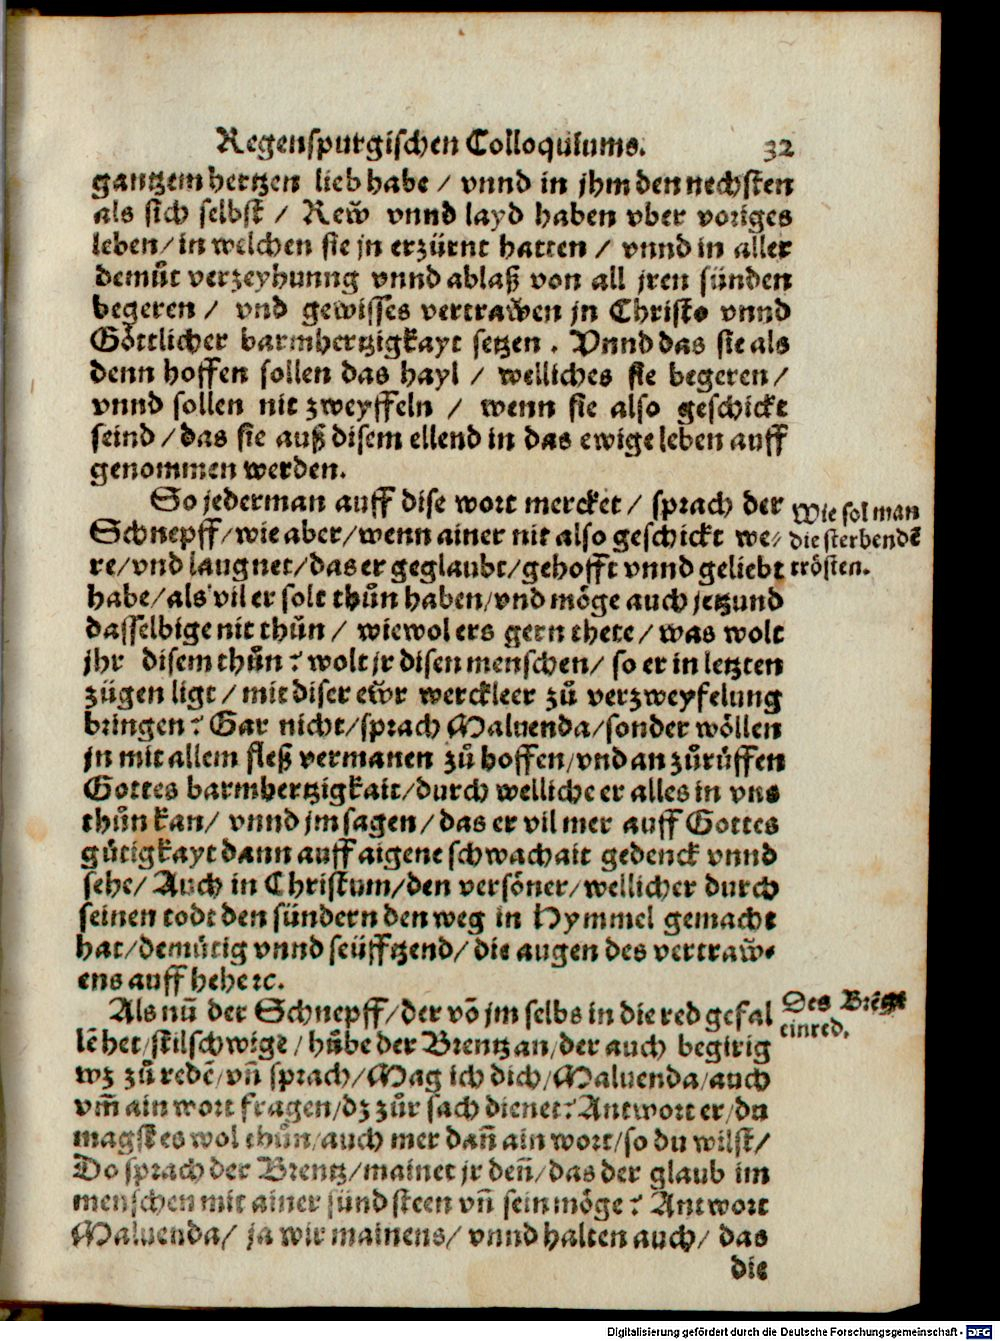 Regenspurgischen Colloquiums. 32
gantzem hertzen lieb habe / vnnd in jhm den nechsten
als sich selbst / Rew̃ vnnd layd haben vber voriges
leben / in welchen sie jn erzürnt hatten / vnnd in aller
demůt verzeyhunng vnnd ablaß von all jren sünden
begeren / vnd gewisses vertraw̃en jn Christo vnnd
Göttlicher barmhertzigkayt setzen . Vnnd das sie als
denn hoffen sollen das hayl / welliches sie begeren /
vnnd sollen nit zweyffeln / wenn sie also geschickt
seind / das sie auß disem ellend in das ewige leben auff
genommen werden.
So jederman auff dise wort mercket / sprach der
Wie sol man
Schnepff / wie aber / wenn ainer nit also geschickt we⸗
die sterbendẽ
re / vnd laugnet / das er geglaubt / gehofft vnnd geliebt
trösten.
habe / als vil er solt thůn haben / vnd möge auch jetzund
dasselbige nit thůn / wiewol ers gern thete / was wolt
jhr disem thůn? wolt jr disen menschen / so er in letzten
zügen ligt / mit diser ew̃r werckleer zů verzweyfelung
bringen? Gar nicht / sprach Maluenda / sonder wöllen
jn mit allem fleß vermanen zů hoffen / vnd an zůrůffen
Gottes barmhertzigkait / durch welliche er alles in vns
thůn kan / vnnd jm sagen / das er vil mer auff Gottes
gütigkayt dann auff aigene schwachait gedenck vnnd
sehe / Auch in Christum / den versöner / wellicher durch
seinen todt den sündern den weg in Hymmel gemacht
hat / demütig vnnd seüfftzend / die augen des vertraw̃⸗
ens auff hebe ꝛc.
Als nũ der Schnepff / der võ jm selbs in die red gefal
Des Brẽtz
lẽ het / stilschwige / hůbe der Brentz an / der auch begirig
einred.
wz zů redẽ / vñ sprach / Mag ich dich / Maluenda / auch
vm̃ ain wort fragen / dz zůr sach dienet? Antwort er / du
magst es wol thůn / auch mer dañ ain wort / so du wilst /
Do sprach der Brentz / mainet jr deñ / das der glaub im
menschen mit ainer sünd steen vñ sein möge? Antwort
Maluenda / ja wir mainens / vnnd halten auch / das
die
Digitalisierung gefördert durch die Deutsche Forschungsgemeinschaft - DFG